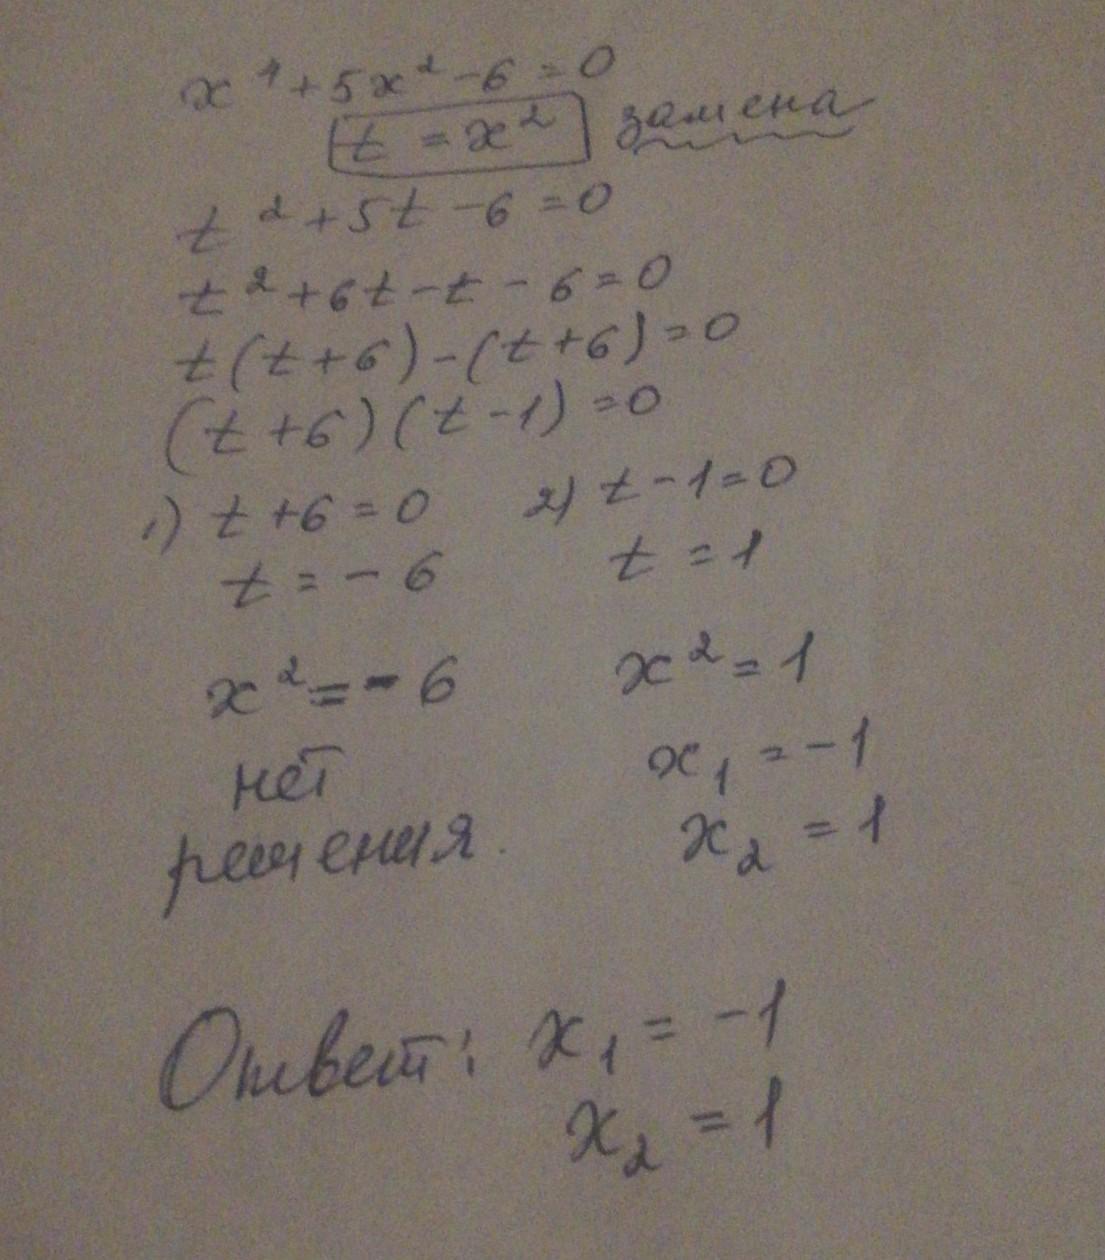 x⁴ + 5x² - 6 = 0
t = x² замена
t² + 5t - 6 = 0
t² + 6t - t - 6 = 0
t(t + 6) - (t + 6) = 0
(t + 6)(t - 1) = 0
1) t + 6 = 0 2) t - 1 = 0
t = - 6 t = 1
x² = - 6 x² = 1
нет x₁ = - 1
решения. x₂ = 1
Ответ: x₁ = - 1
x₂ = 1